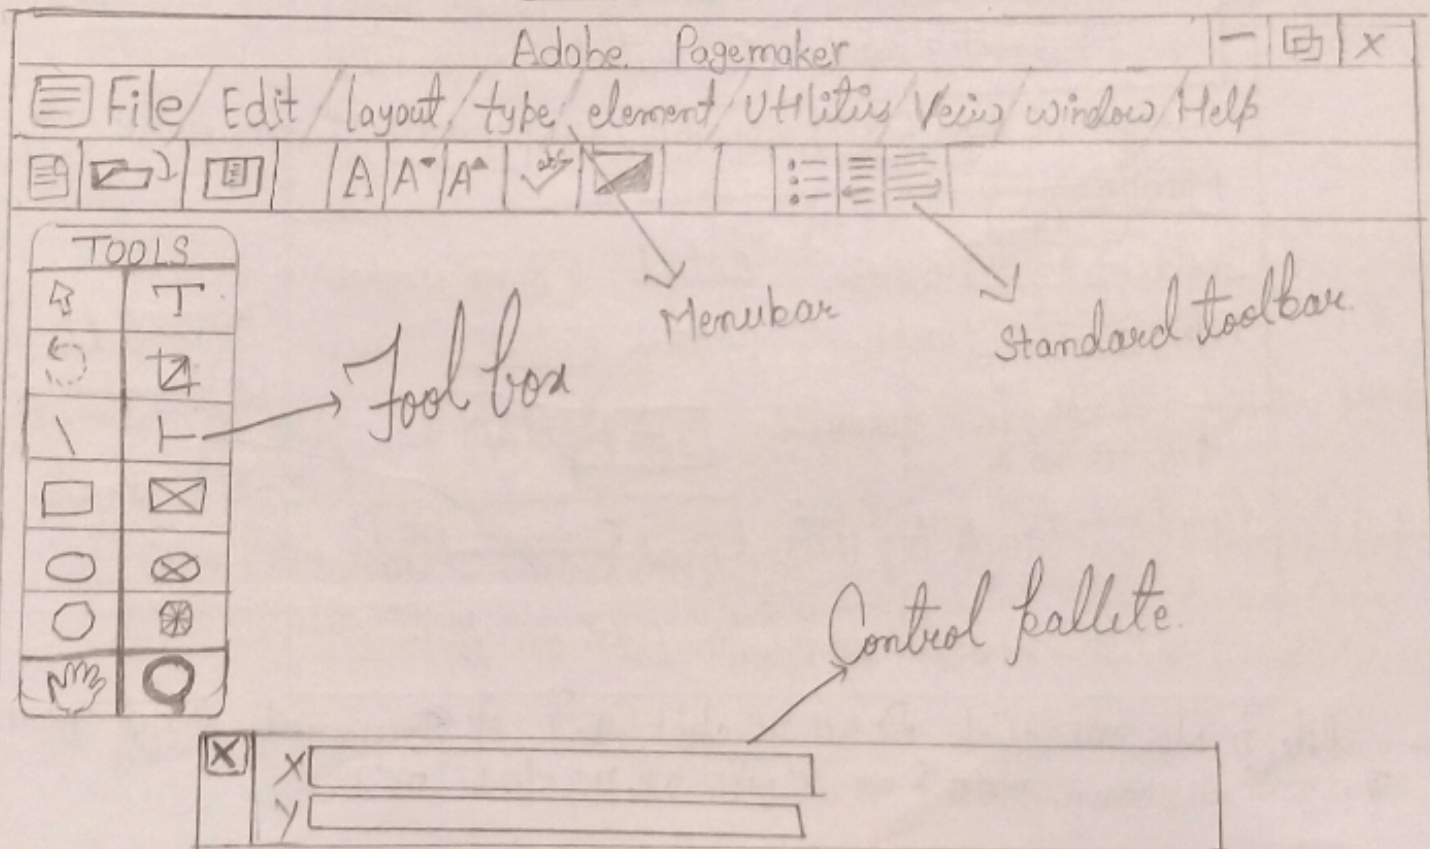 Adobe Pagemaker
File / Edit / layout / type / element / Utilitis / Veiw / window / Help
A A A abc
TOOLS
T
Menubar
Standard toolbar
Tool box
Control pallite
X X
Y